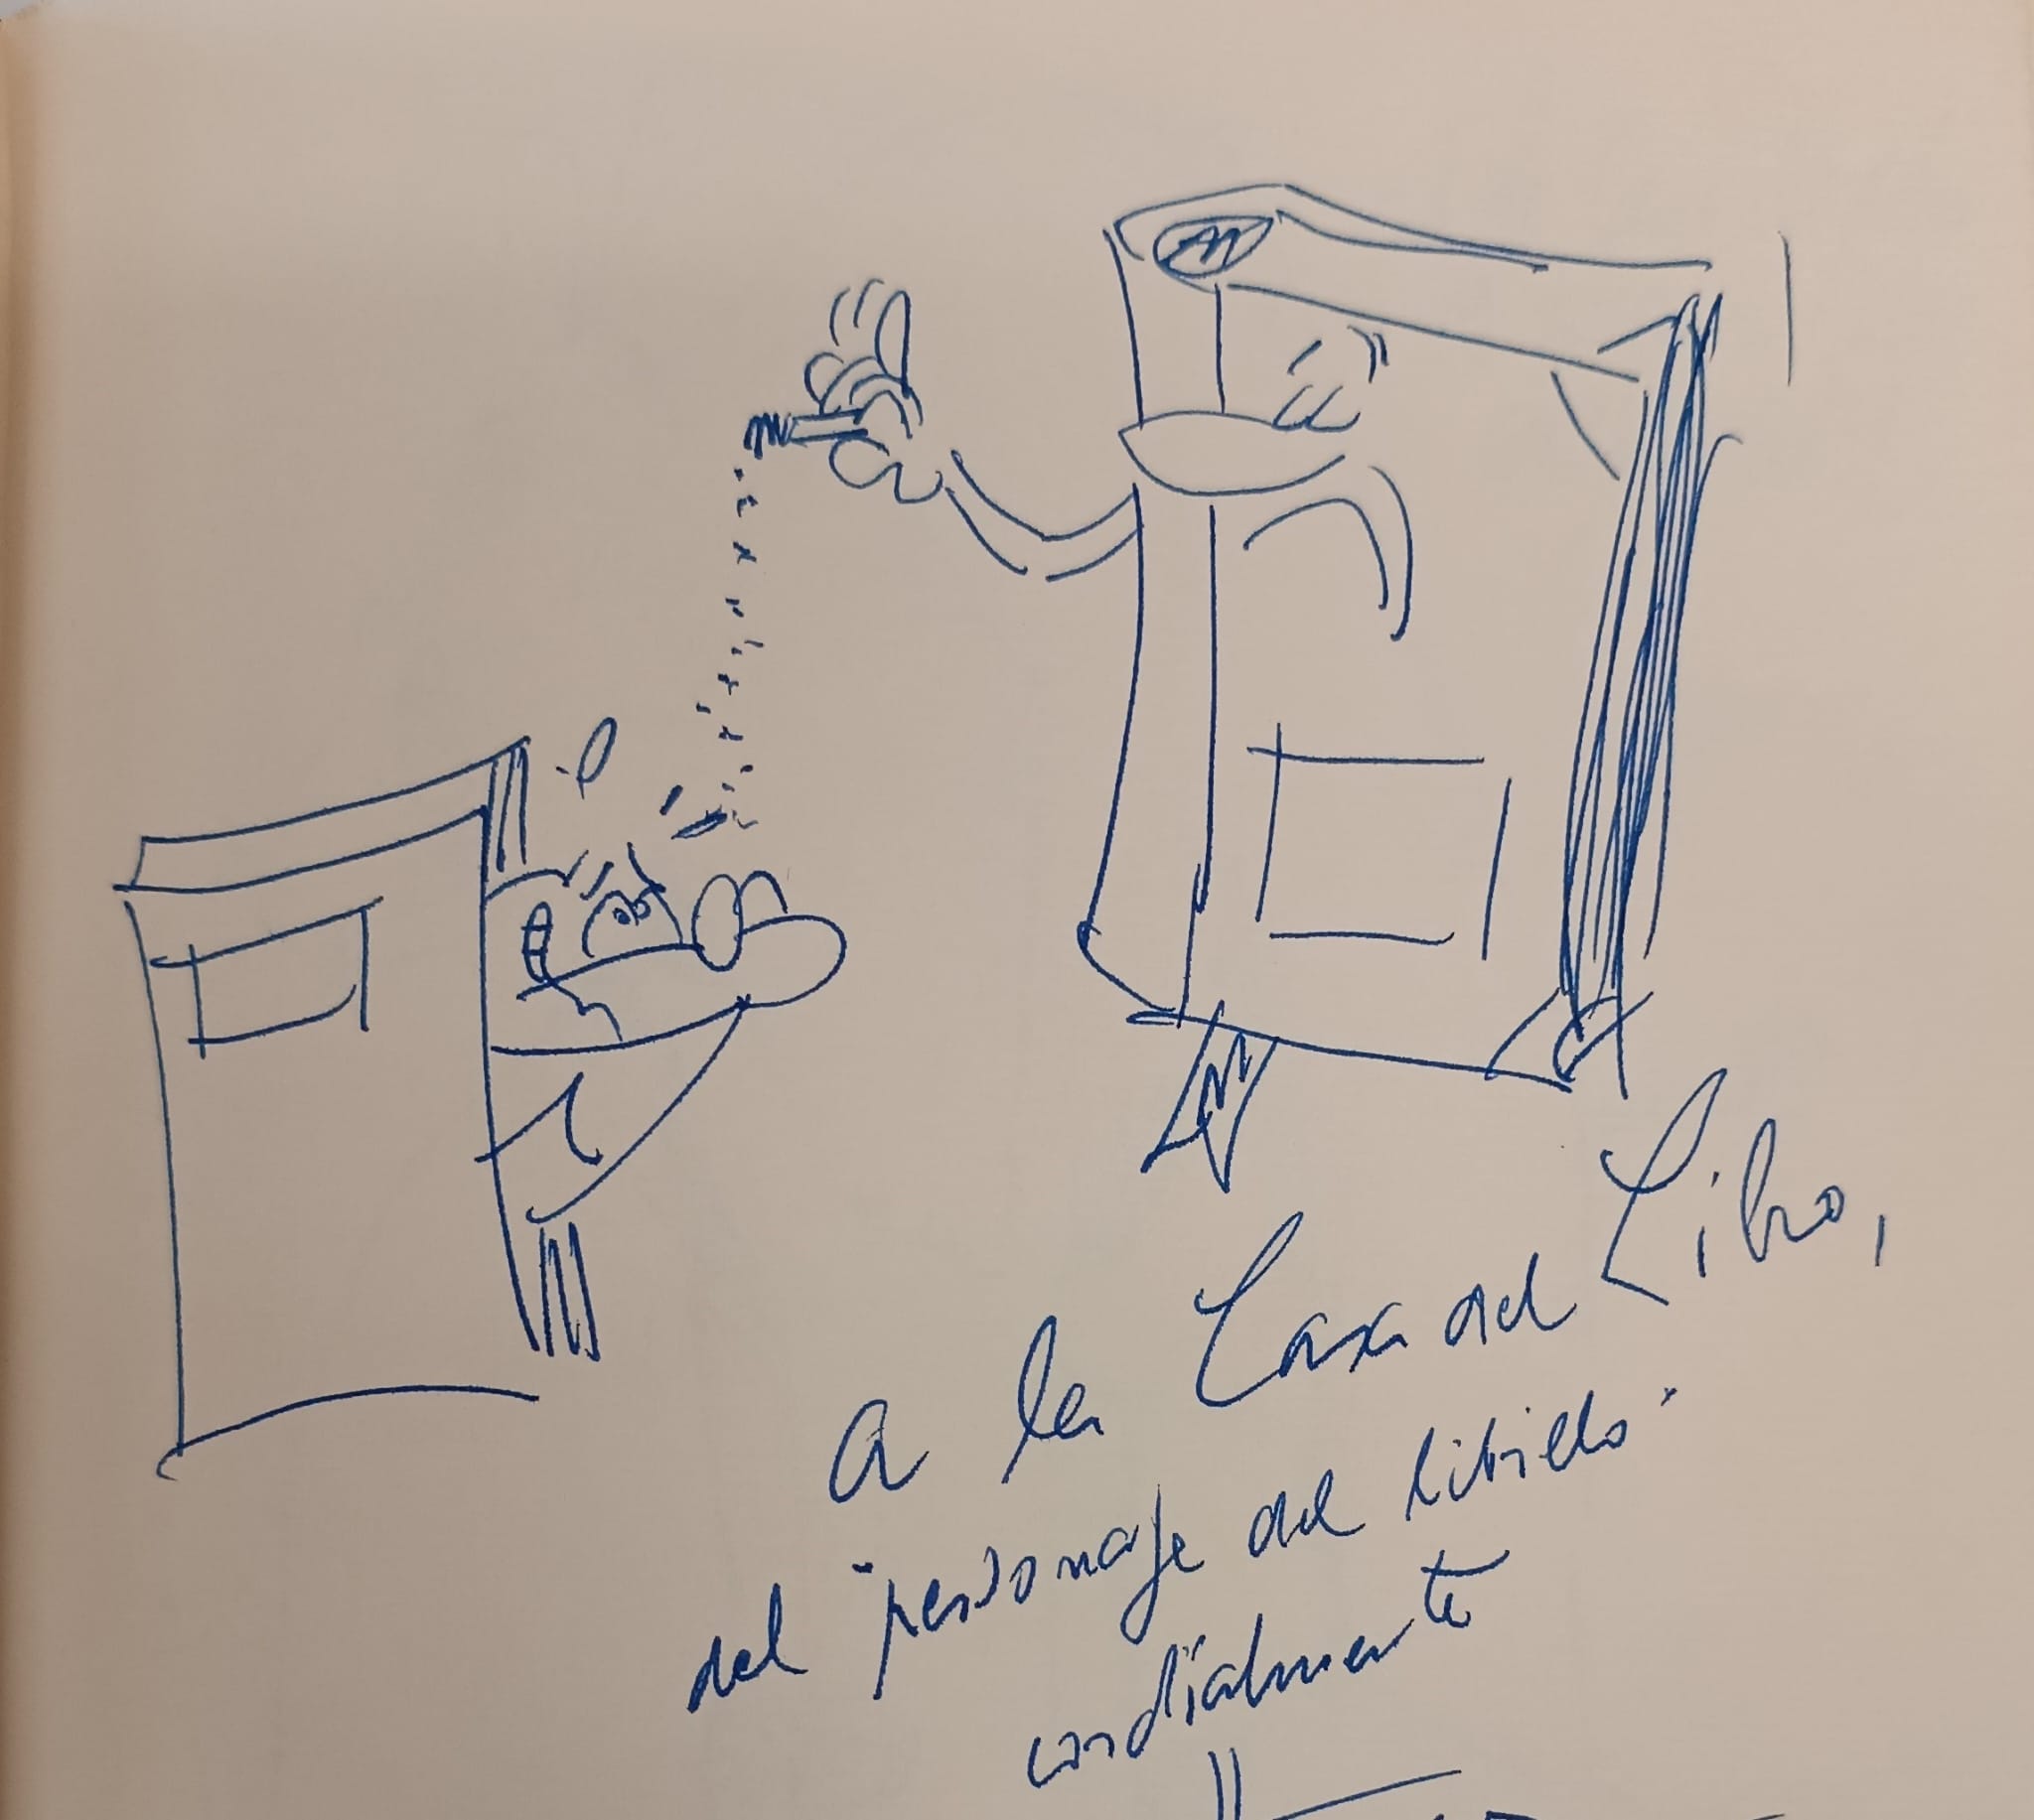 a la Casa del Libro,
del "personaje del librillo"
cordialmente